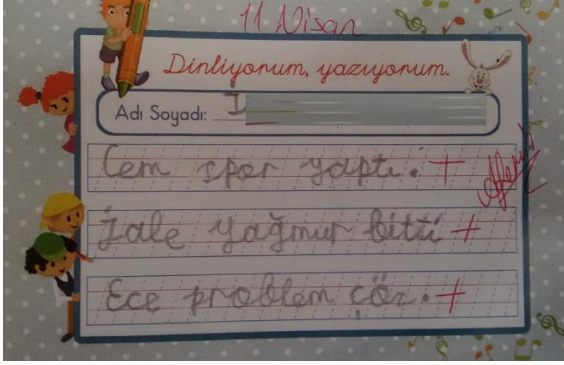 11 Nisan
Dinliyorum, yazıyorum.
Adı Soyadı: I
Cem spor yaptı. +
Jale yağmur bitti +
Ece problem çöz. +